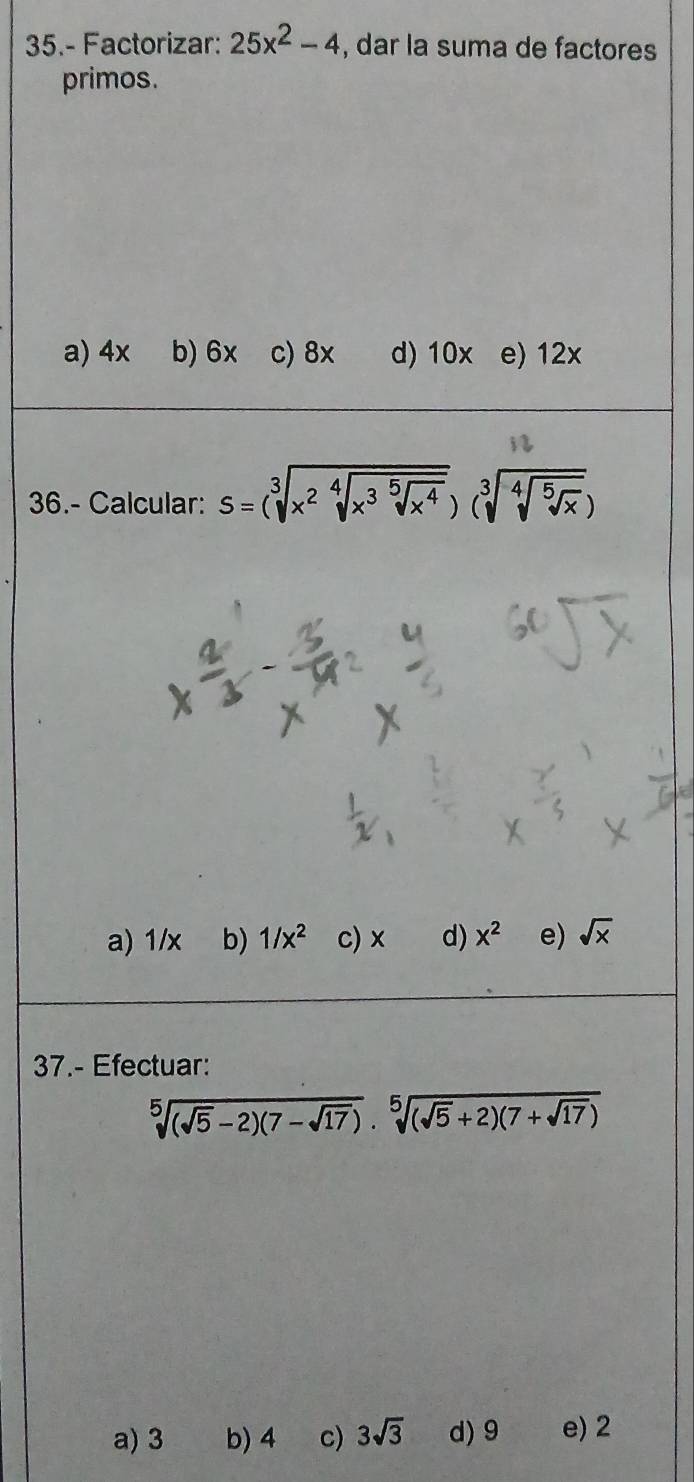 35.- Factorizar: 25x² – 4, dar la suma de factores
primos.
a) 4x b) 6x c) 8x d) 10x e) 12x
12
36.- Calcular: S = (∛(x² ∜(x³ ⁵√(x⁴)))) (∛(∜(⁵√x)))
60√x
a) 1/x b) 1/x² c) x d) x² e) √x
37.- Efectuar:
⁵√((√5 – 2)(7 – √17)) . ⁵√((√5 + 2)(7 + √17))
a) 3 b) 4 c) 3√3 d) 9 e) 2